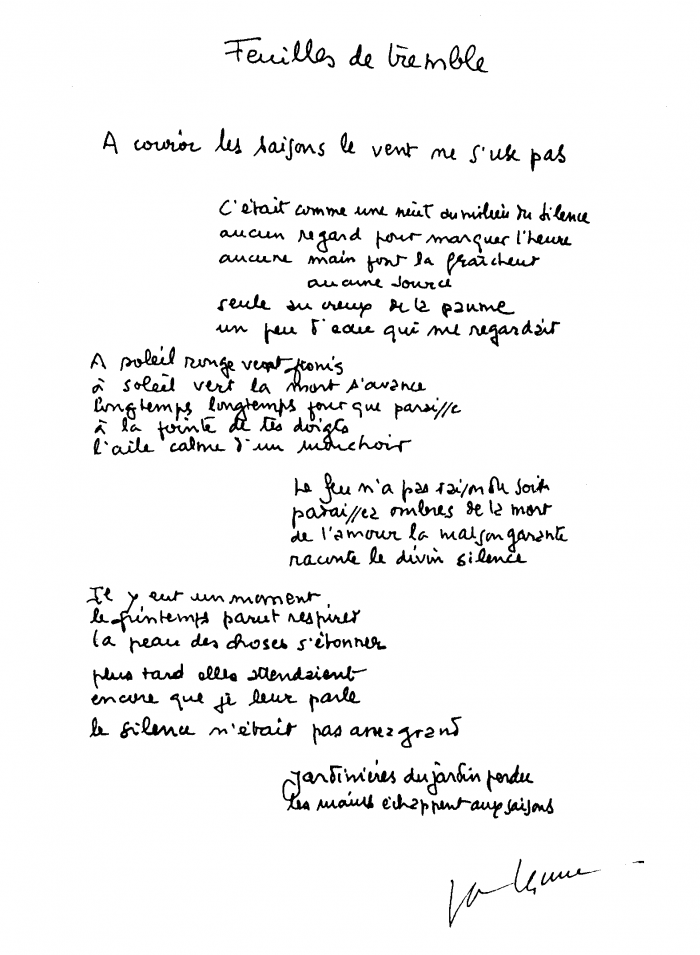 Feuilles de tremble
A courir les saisons le vent ne s'use pas
C'était comme une nuit au milieu du silence
aucun regard pour marquer l'heure
aucune main pour la fraîcheur
aucune source
seule au creux de la paume
un peu d'eau qui me regardait
A soleil rouge vent
à soleil vert la mort s'avance
longtemps longtemps pour que paraisse
à la pointe de tes doigts
l'aile calme d'un mouchoir
Le feu n'a pas raison du soir
paraissez ombres de la mort
de l'amour la maison garante
raconte le divin silence
Il y eut un moment
le printemps parut respirer
la peau des choses s'étonner
plus tard elles attendaient
encore que je leur parle
le silence n'était pas assez grand
Jardinières du jardin perdu
les mains échappent aux saisons